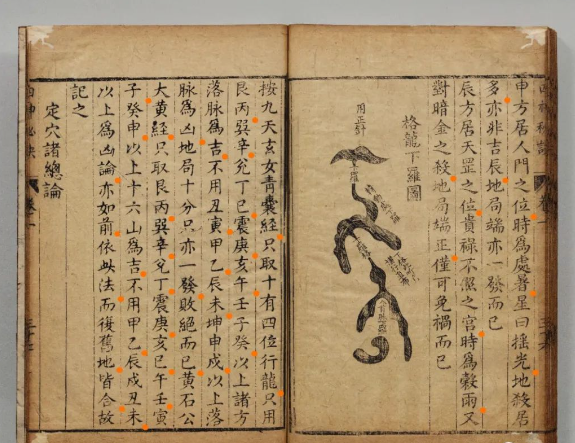 申方居人門之位時爲處暑星曰搖光地殺居
多亦非吉辰地局端亦一發而已
辰方居天罡之位貴祿不潔之宮時爲穀雨又
對暗金之殺地局端正僅可免禍而已
格龍下羅圖
用正針
按九天玄女青囊經只取十有四位行龍只用
艮丙巽辛兌丁巳震庚亥午壬子癸以上諸方
落脉爲吉不用丑寅甲乙辰未坤申戌以上落
脉爲凶地局十分只亦一發敗絕而已黃石公
大黃經只取艮丙巽辛兌丁震庚亥巳午壬寅
子癸申以上十六山爲吉不用甲乙辰戌丑未
以上爲凶論亦如前依此法而復舊地皆合故
記之
定穴諸總論